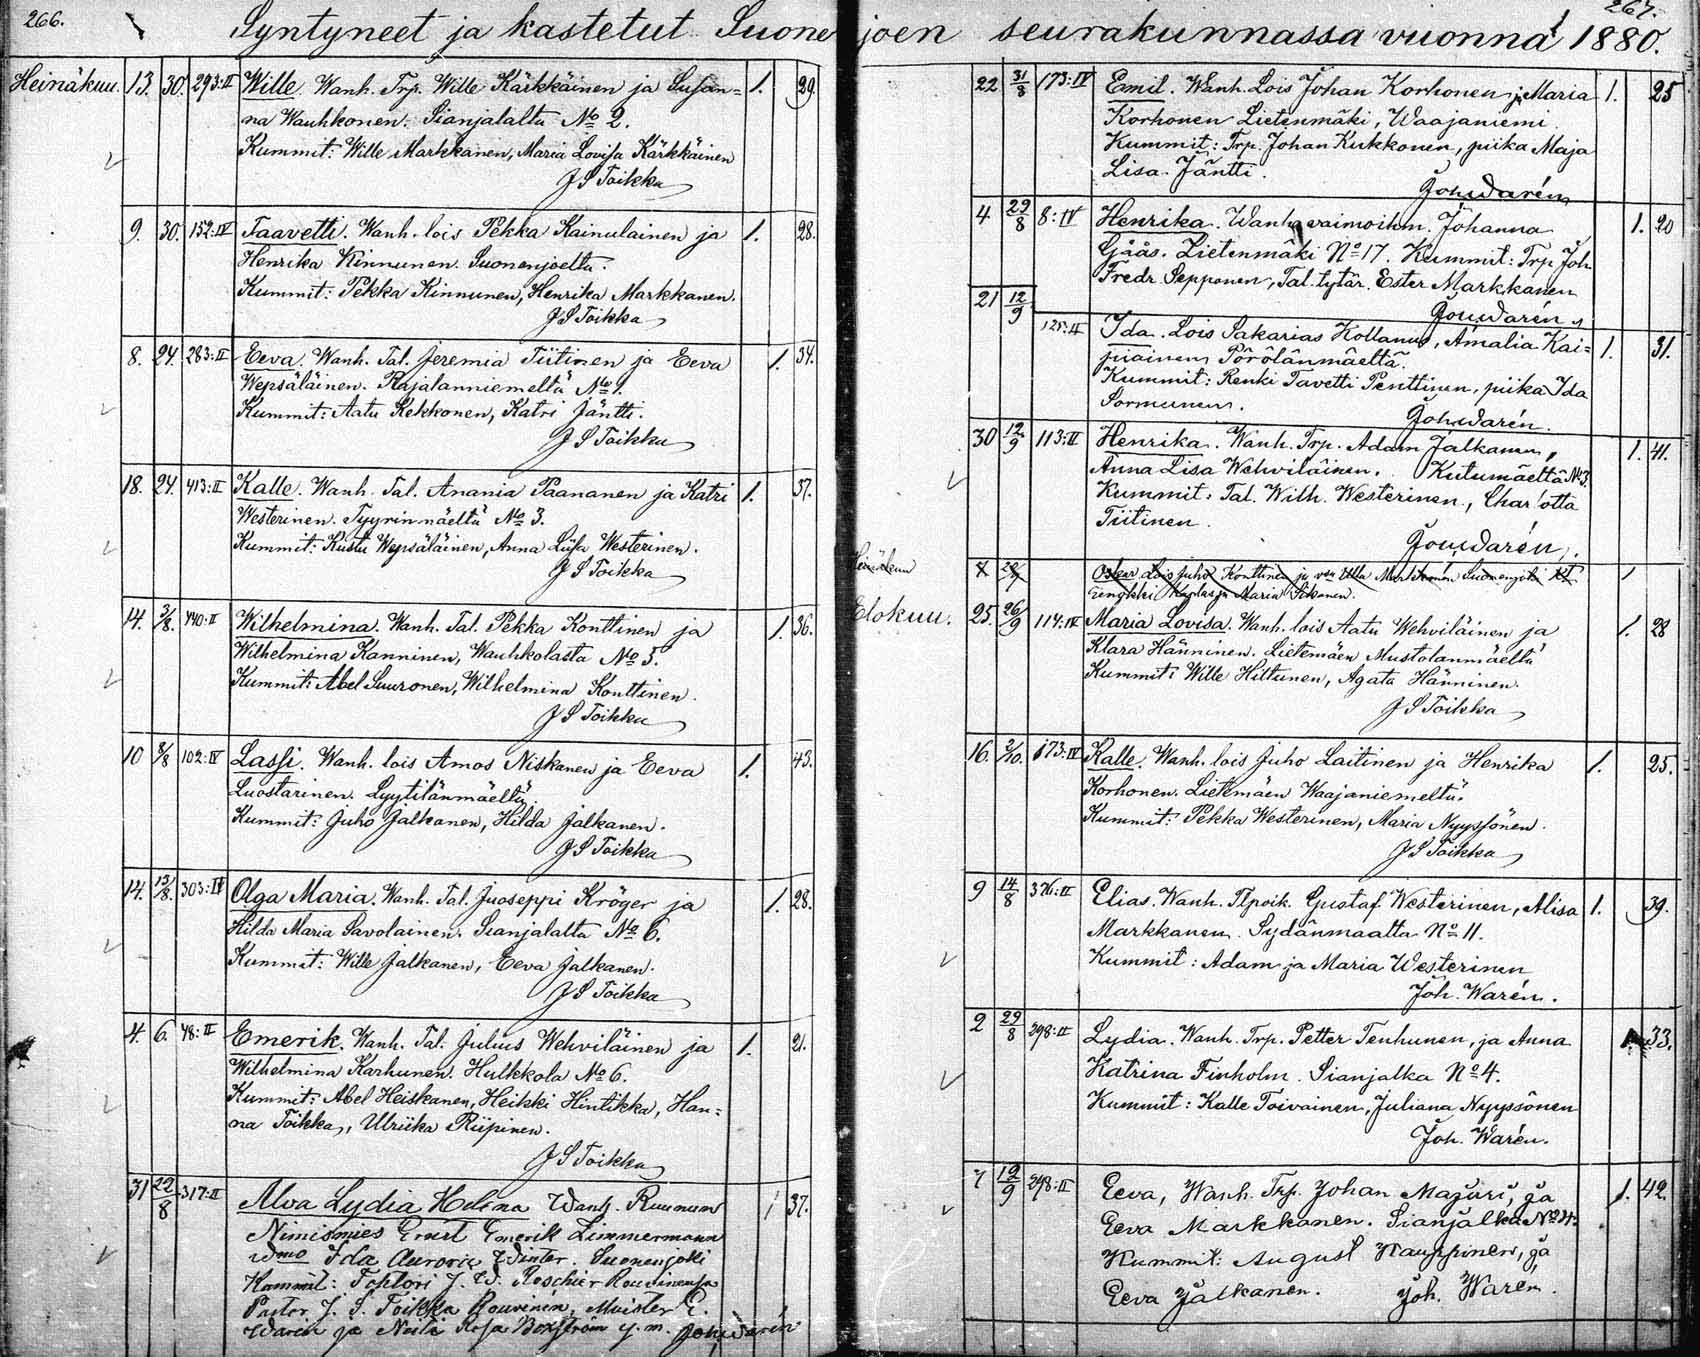 266.
Syntyneet ja kastetut Suone
Heinäkuu. 13. 30. 293:II Wille. Wanh. Trp. Wille Kärkkäinen ja Susan= 1. 29.
na Wauhkonen. Sianjalalta No 2.
Kummit: Wille Markkanen, Maria Lovisa Kärkkäinen
J S Toikka
9. 30. 152:IV Taavetti. Wanh. lois Pekka Kainulainen ja 1. 28.
Henrika Kinnunen. Suonenjoelta.
Kummit: Pekka Kinnunen, Henrika Markkanen.
J S Toikka
8. 24. 283:II Eeva. Wanh. Tal. Jeremia Tiitinen ja Eeva 1. 34.
Wepsäläinen. Rajalanniemeltä No 1.
Kummit: Aatu Kekkonen, Katri Jäntti.
J S Toikka
18. 24. 413:II Kalle. Wanh. Tal. Anania Paananen ja Katri 1. 37.
Westerinen. Tyyrinmäeltä No 3.
Kummit: Kustu Wepsäläinen, Anna Liisa Westerinen.
J S Toikka
14. 3/8. 440:II Wilhelmina. Wanh. Tal. Pekka Konttinen ja 1. 36.
Wilhelmina Kanninen, Wauhkolasta No 3.
Kummit: Abel Suuronen, Wilhelmina Konttinen.
J S Toikka
10 8/8 102:IV Lassi. Wanh. lois Amos Niskanen ja Eeva 1. 43.
Luostarinen. Lyytilänmäeltä.
Kummit: Juho Jalkanen, Hilda Jalkanen.
J S Toikka
14. 15/8. 303:IV Olga Maria. Wanh. Tal. Juoseppi Kröger ja 1. 28.
Hilda Maria Savolainen. Sianjalalta No 6.
Kummit: Wille Jalkanen, Eeva Jalkanen.
J S Toikka
4. 6. 48:II Emerik. Wanh. Tal. Julius Wehviläinen ja 1. 21.
Wilhelmina Karhunen. Hulkkola No 6.
Kummit: Abel Heiskanen, Heikki Hintikka, Han=
na Toikka, Ulriika Riipinen.
J S Toikka
31 22/8 317:II Alva Lydia Helena Wanh. Ruunun 1 37.
Nimismies Ernst Emerik Zimmermann
wmo Ida Aurora Winter. Suonenjoki
Kummit: Tohtori J. W. Roschier Rouvinensa
Pastor J. S. Toikka Rouvinen, Maister E.
Warén ja Neiti Rosa Boxström y. m. Joh. Warén
267.
joen seurakunnassa vuonna 1880.
22 31/8 173:IV Emil. Wanh. Lois Johan Korhonen ja Maria 1. 25
Korhonen Lietenmäki, Waajaniemi.
Kummit: Trp. Johan Kukkonen, piika Maja
Lisa Jäntti.
Joh Warén
4 29/8 8:IV Henrika. Wanh. vaimoihm. Johanna 1. 20
Gåås. Lietenmäki No 17. Kummit: Trp Joh
Fredr. Sepponen, Tal. tytär. Ester Markkanen
Joh Warén
21 12/9 125:II Ida. Lois Sakarias Kollanus, Amalia Kai= 1. 31.
piainen Pörölänmäeltä.
Kummit: Renki Tavetti Penttinen, piika Ida
Sormunen.
Joh Warén.
30 12/9 113:II Henrika. Wanh. Trp. Adam Jalkanen, 1. 41.
Anna Lisa Wehviläinen. Kutumäeltä No 3.
Kummit: Tal. Wilh. Westerinen, Charlotta
Tiitinen.
Joh Warén.
Heinäkuu 8 Oskar Lois Juho Konttinen ja Ulla Suonenjoki
ja Maria Sikanen.
Elokuu. 25. 26/9 114:IV Maria Lovisa. Wanh. lois Aatu Wehviläinen ja 1. 28
Klara Hänninen. Lietemäen Mustolanmäeltä
Kummit: Wille Hiltunen, Agata Hänninen.
J S Toikka
16. 3/10. 173:IV Kalle. Wanh. lois Juho Laitinen ja Henrika 1. 25.
Korhonen. Lietemäen Waajaniemeltä.
Kummit: Pekka Westerinen, Maria Nyyssönen.
J S Toikka
9 14/8 376:II Elias. Wanh. Tlpoik. Gustaf Westerinen, Alisa 1. 39.
Markkanen. Sydänmaalta No 11.
Kummit: Adam ja Maria Westerinen
Joh. Warén.
2 29/8 398:II Lydia. Wanh. Trp. Petter Tenhunen, ja Anna 1. 33.
Katrina Finholm. Sianjalka No 4.
Kummit: Kalle Toivainen, Juliana Nyyssönen
Joh. Warén.
7 19/9 298:II Eeva, Wanh. Trp. Johan Majuri, ja 1. 42.
Eeva Markkanen. Sianjalka No 24.
Kummit: August Kauppinen, ja
Eeva Jalkanen. Joh. Warén.